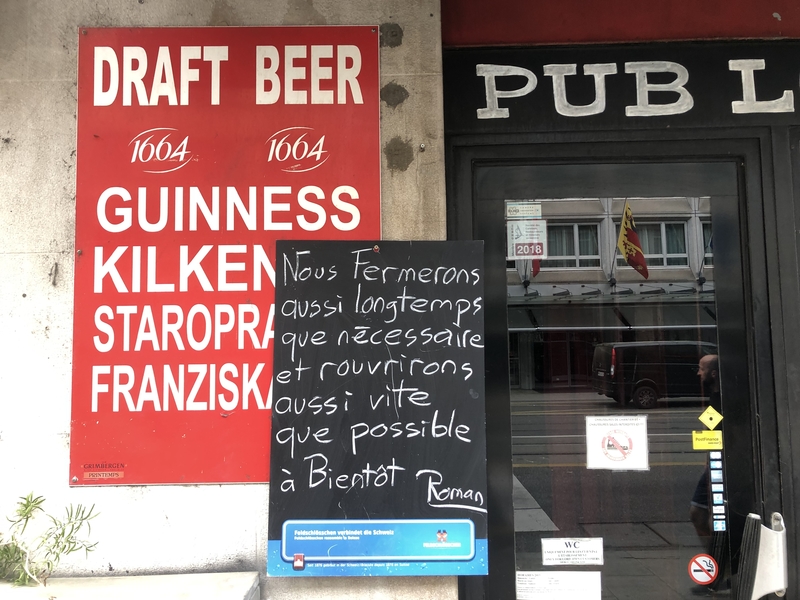 DRAFT BEER
1664 1664
GUINNESS
KILKEN
STAROPRA
FRANZISKA
GRIMBERGEN
PRINTEMPS
Nous Fermerons
aussi longtemps
que nécessaire
et rouvrirons
aussi vite
que possible
à Bientôt
Roman
Feldschlösschen verbindet die Schweiz
PUB L
2018
PostFinance
WC